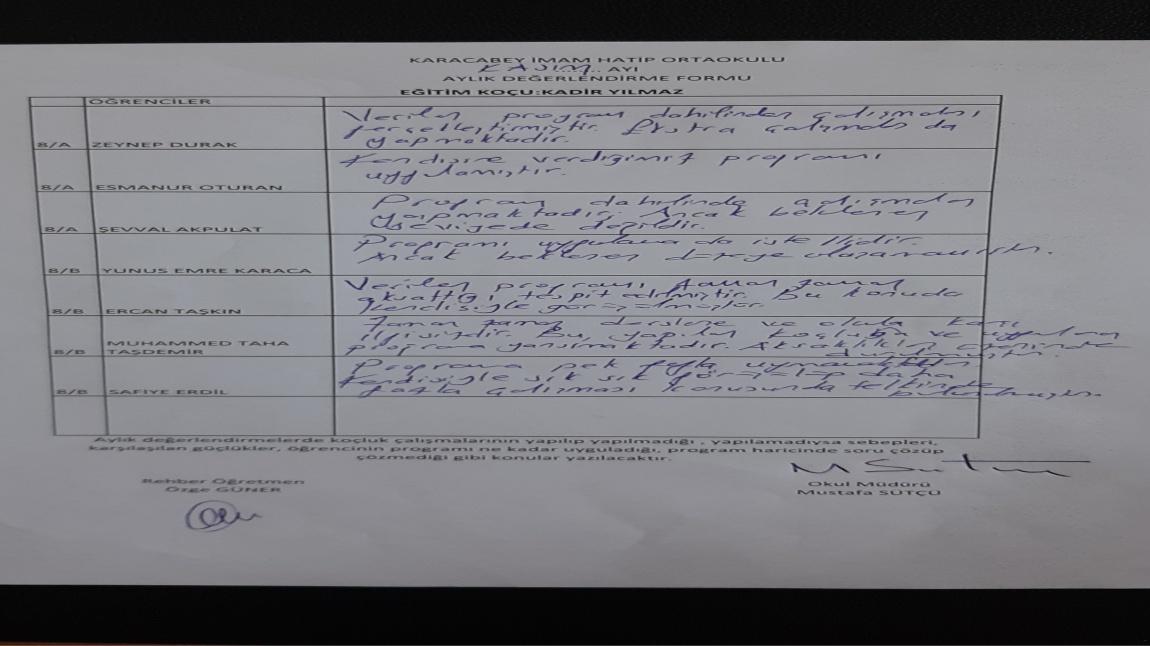 KARACABEY İMAM HATİP ORTAOKULU
KASIM AYI
AYLIK DEĞERLENDİRME FORMU
EĞİTİM KOÇU:KADİR YILMAZ
ÖĞRENCİLER
8/A ZEYNEP DURAK
Verilen program dahilinde çalışmaları
gerçekleştirmiştir. Ekstra çalışmalar da
yapmaktadır.
8/A ESMANUR OTURAN
Kendisine verdiğimiz programı
uygulamıştır.
8/A ŞEVVAL AKPULAT
Program dahilinde çalışmalar
yapmaktadır. Ancak beklenen
seviyede değildir.
8/B YUNUS EMRE KARACA
Programı uygulama da isteklidir.
Ancak beklenen
8/B ERCAN TAŞKIN
Verilen programı zaman zaman
aksattığı tespit edilmiştir. Bu konuda
kendisiyle
8/B MUHAMMED TAHA
TAŞDEMİR
Zaman zaman derslere ve okula karşı
ilgisizdir. Bu, yapılan ve uygulanan
programa yansımaktadır. üzerinde
durulmuştur.
8/B SAFİYE ERDİL
Programa pek fazla
Kendisiyle sık sık daha
fazla çalışması konusunda telkinde
bulunulmuştur.
Aylık değerlendirmelerde koçluk çalışmalarının yapılıp yapılmadığı , yapılamadıysa sebepleri,
karşılaşılan güçlükler, öğrencinin programı ne kadar uyguladığı, program haricinde soru çözüp
çözmediği gibi konular yazılacaktır.
Rehber Öğretmen
Özge GÜNER
Okul Müdürü
Mustafa SÜTÇÜ